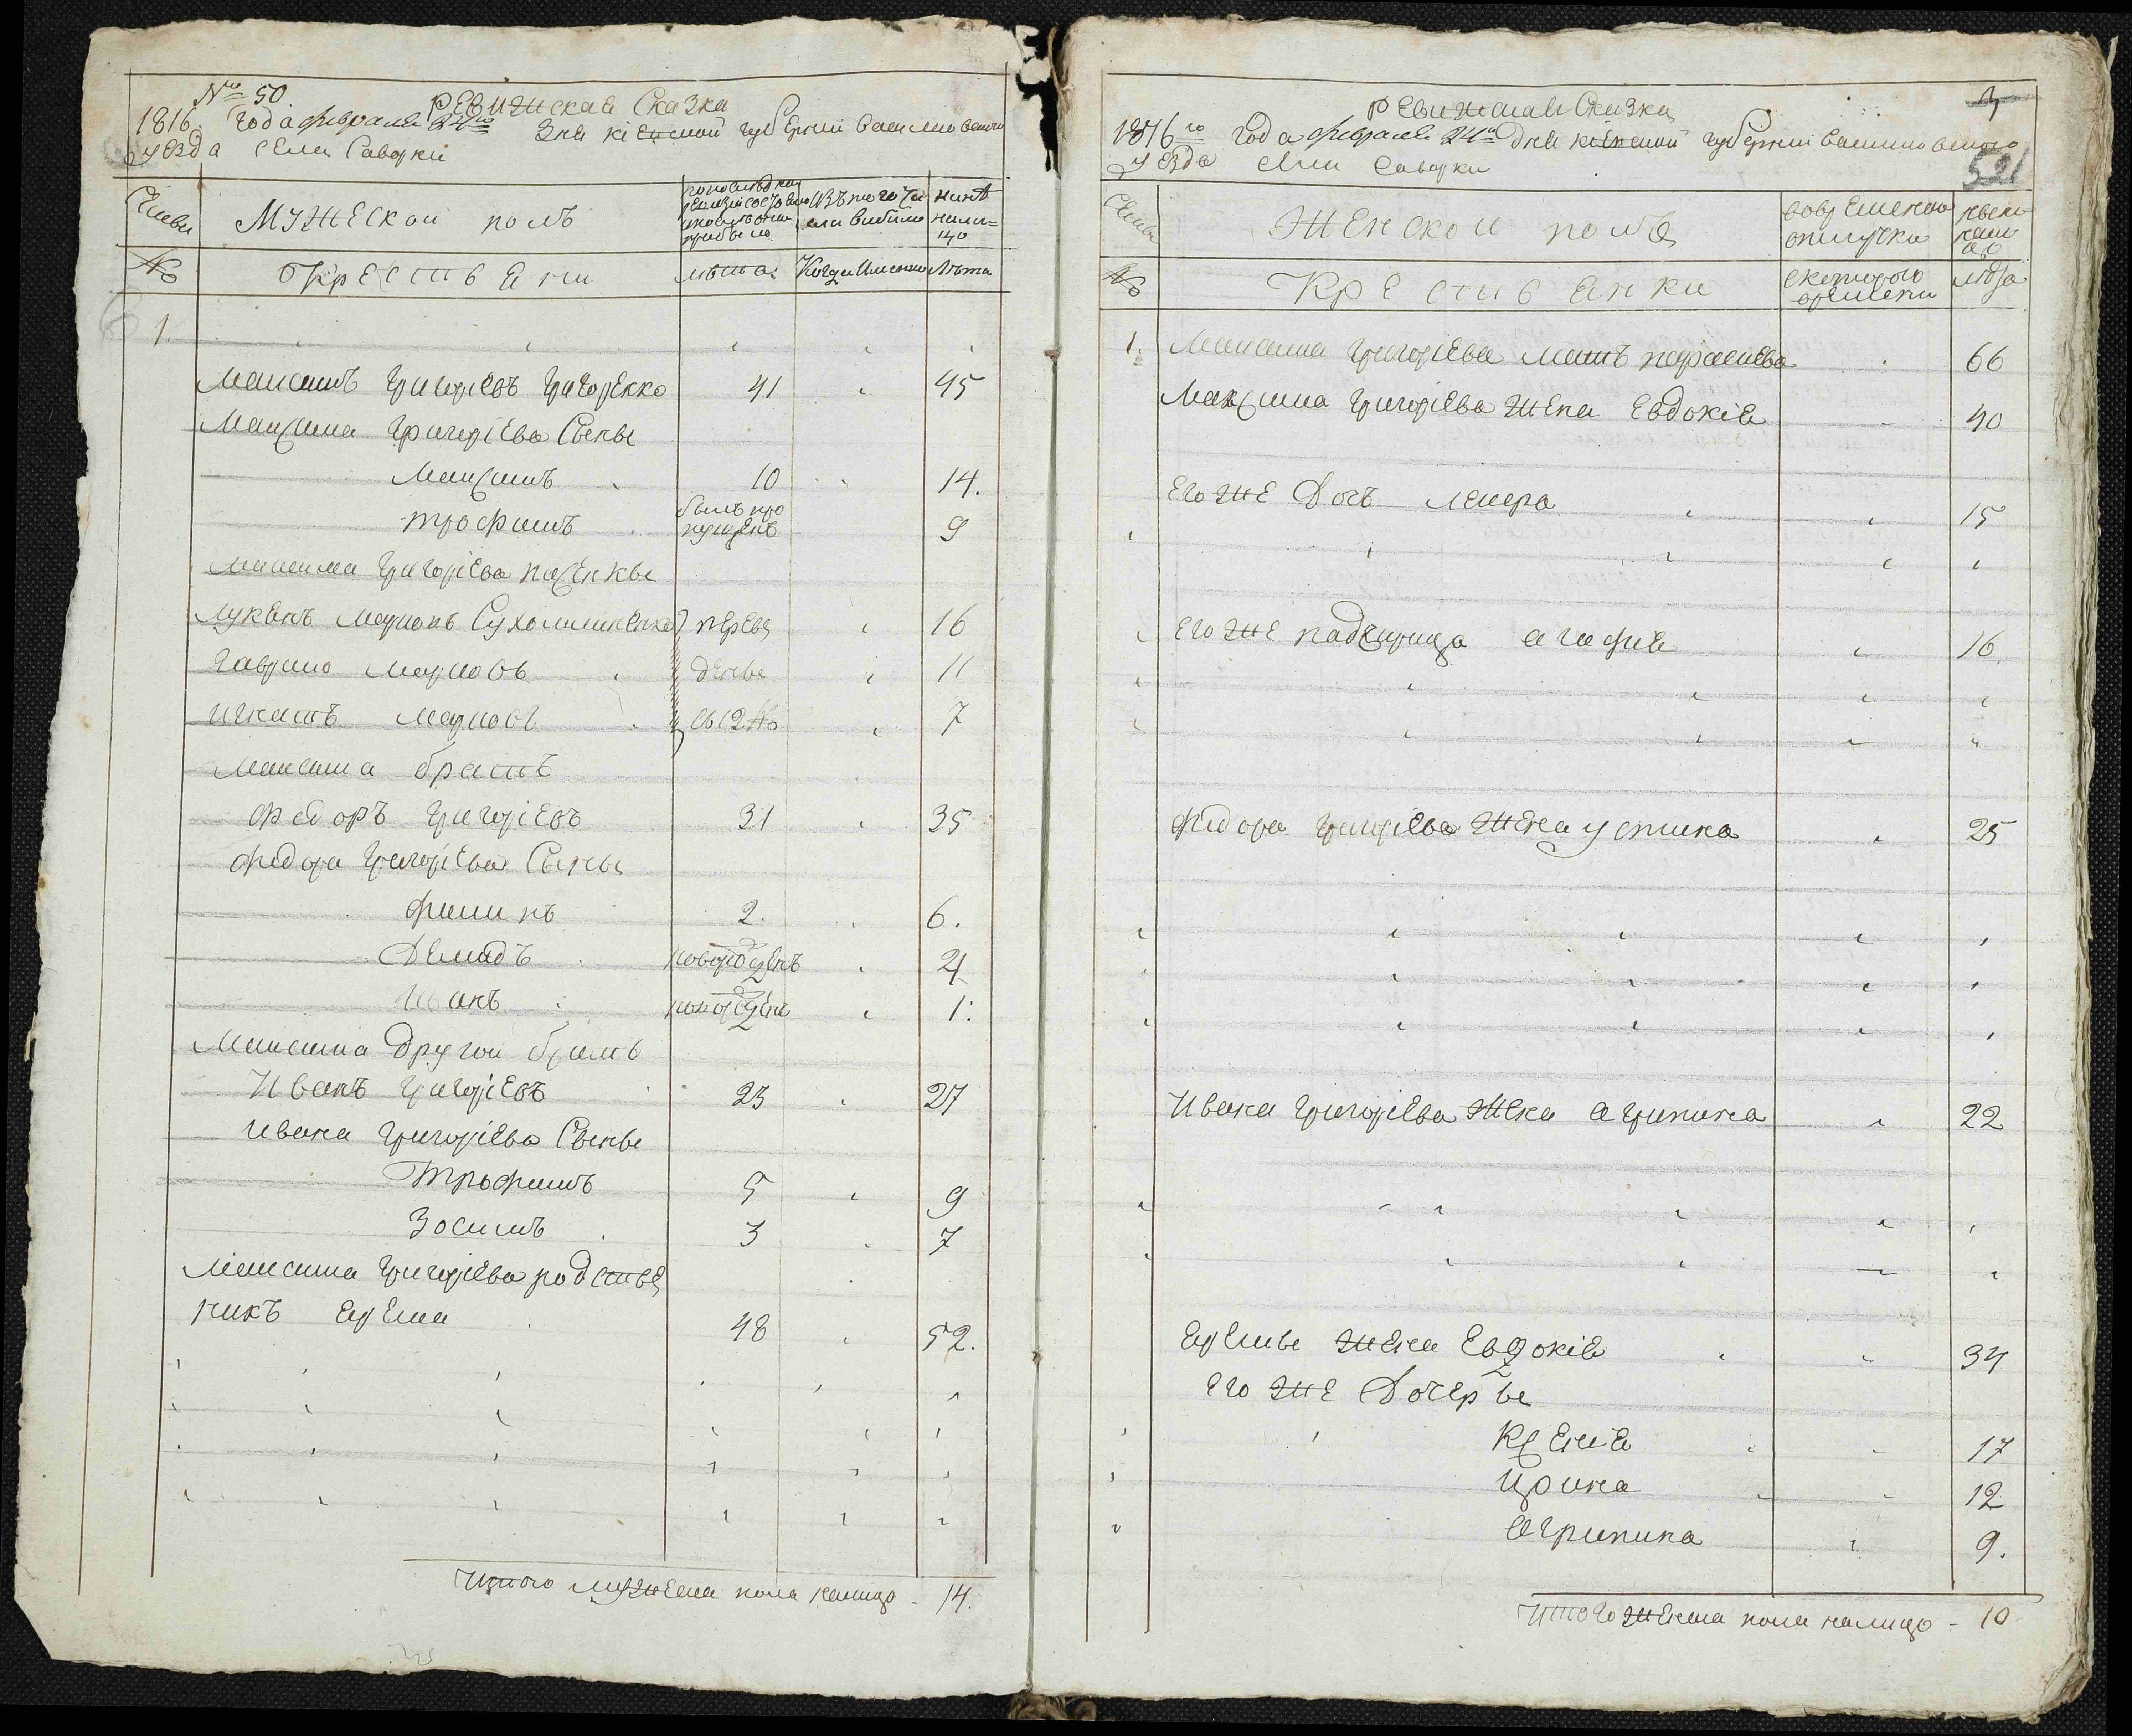 № 50
Ревижская Сказка
1816. Года февраля 24го Дня кіевской губерніи васильковского
уезда села Саварки
Семьи
Мужеской полъ
по последней ревизіи состояло и после оной прибыло
Изъ того числа выбыло
ныне налицо
№
Крестьяни
лѣта
Когда именно
Лѣта
1.
Максимъ Григоріевъ Григоренко 41 45
Максима Григоріева Сынвы
Максимъ 10 14.
трофимъ былъ пропущенъ 9
Максима Григоріева пасенквы
Лукянъ марковъ Сухолитенко перевѣ 16
гаврило марковъ дены 11
игнатъ марковъ съ 2 № 7
Максима братъ
Федоръ Григоріевъ 31 35
Федора Григоріева Сыны
Филипъ 2. 6.
Демидъ новорожденъ 4
Иванъ новорожденъ 1.
Максима другой братъ
Иванъ Григоріевъ 23 27
Ивана Григоріева Сынвы
Трофимъ 5 9
Зосимъ 3 7
Максима Григоріева родстве
никъ Ерема 48 52.
Итого мужеска пола налицо - 14.
3
521
Ревижская Сказка
1816го Года февраля 24го дня кіевской губерніи васильковского
уезда села Саварки
Семьи
Женской полъ
вовремяной отлучки
ныне налицо
№
Крестьянки
с которого времени
лѣта
1. Максима Григоріева мать параскева 66
Максима Григоріева жена Евдокія 40
Его же Дочъ 15
Его же падчерица агафия 16
Федора Григоріева жена устина 25
Ивана Григоріева жена агрипина 22
Еремы жена Евдокія 34
Его же Дочеры
Ксенія 17
Ирина 12
Агрипина 9.
Итого женска пола налицо - 10